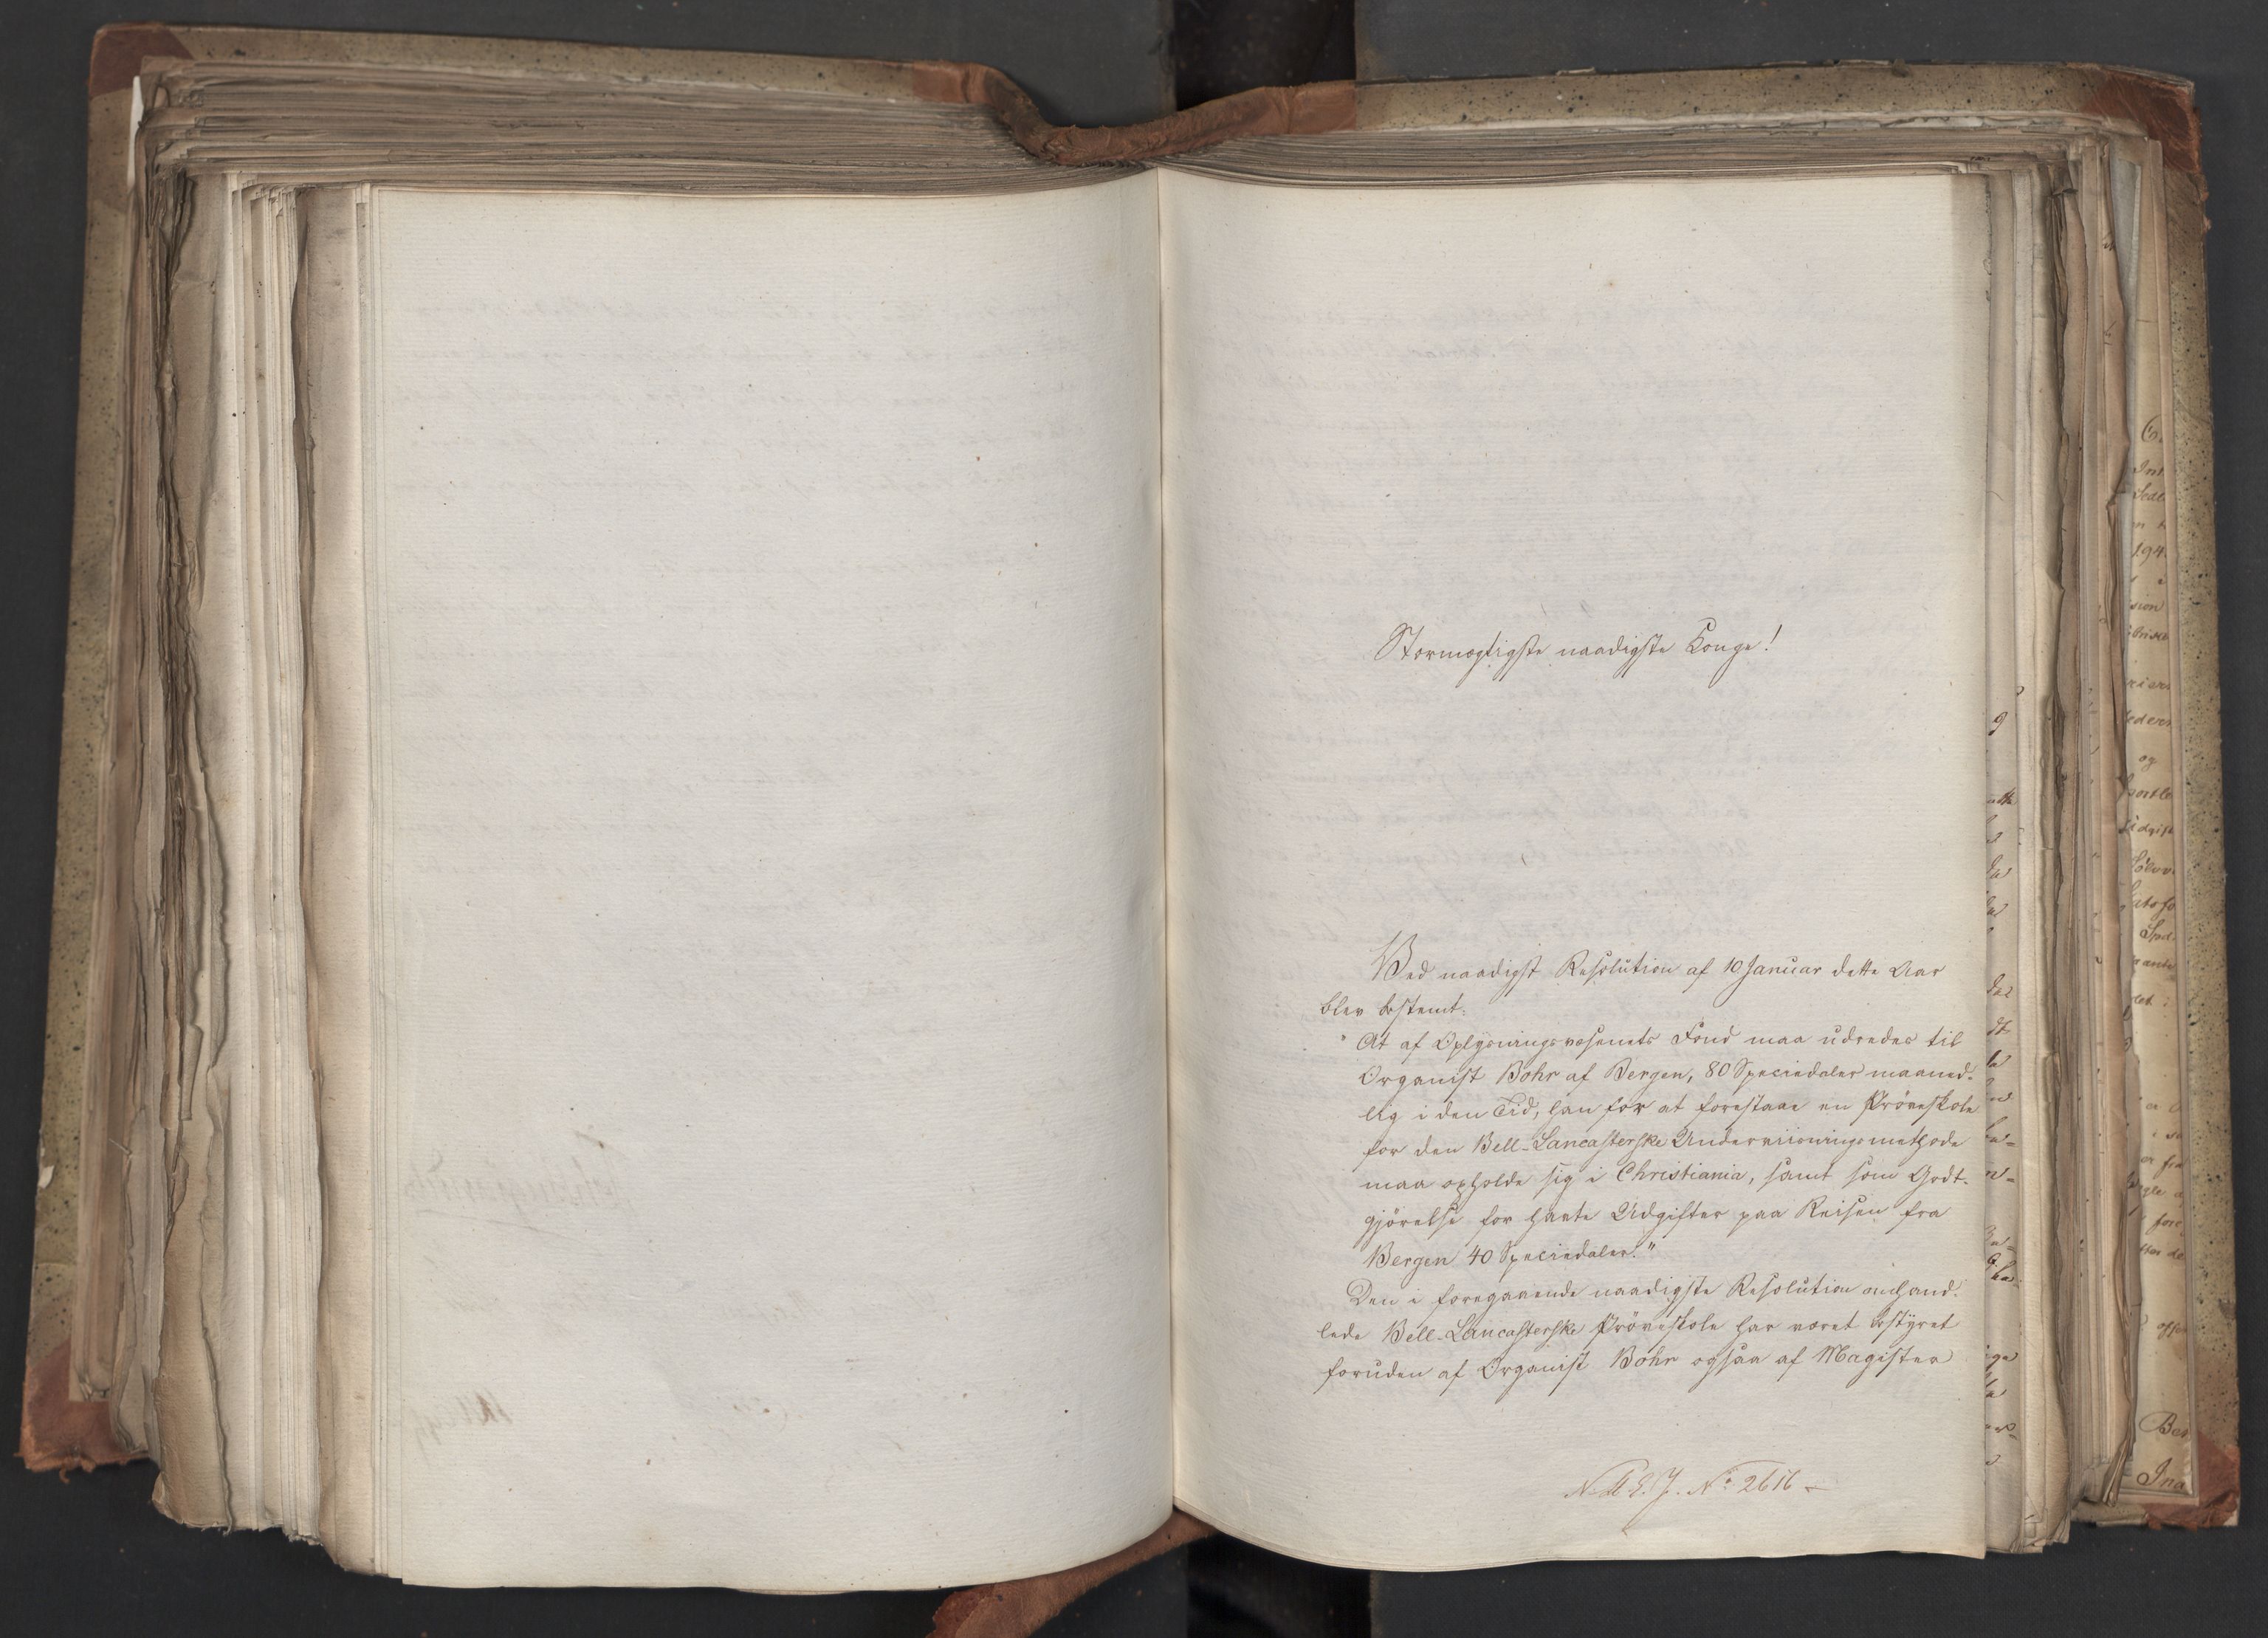 Stormægtigste naadigste Konge!
Ved naadigst Resolution af 10 Januar dette Aar
blev bestemt:
"At af Oplysningsvæsenets Fond maa udredes til
Organist Bohr af Bergen, 80 Speciedaler maaned-
lig i den Tid, han for at forestaae en Pröveskole
for den Bell-Lancasterske Underviisningsmethode
maa opholde sig i Christiania, samt som Godt-
gjörelse for havte Udgifter paa Reisen fra
Bergen 40 Speciedaler."
Den i foregaaende naadigste Resolution omhand-
lede Bell-Lancasterske Pröveskole har været bestyret
foruden af Organist Bohr ogsaa af Magister
No 2616